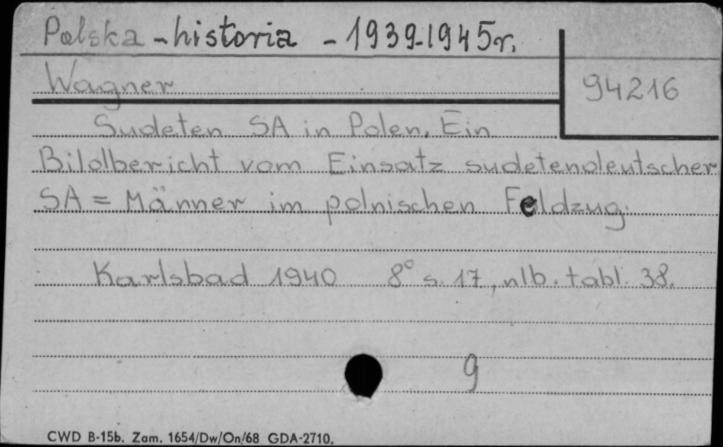 Polska - historia - 1939-1945r.
Wagner
94216
Sudeten SA in Polen. Ein
Bildbericht vom Einsatz sudetendeutscher
SA = Männer im polnischen Feldzug.
Karlsbad 1940 8° s. 17, nlb. tabl. 38.
9
CWD B-15b. Zam. 1654/Dw/On/68 GDA-2710.